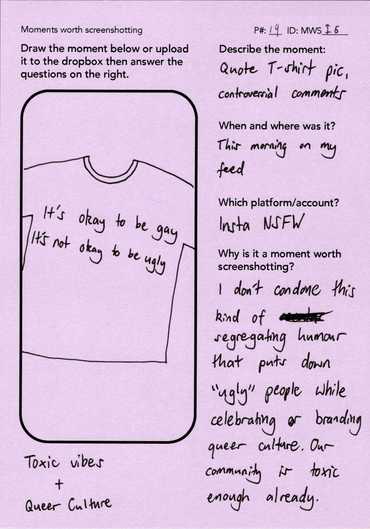 Moments worth screenshotting
P#: 14 ID: MWS 26
Draw the moment below or upload
it to the dropbox then answer the
questions on the right.
It's okay to be gay
It's not okay to be ugly
Toxic vibes
+
Queer Culture
Describe the moment:
Quote T-shirt pic,
controversial comments
When and where was it?
This morning on my
feed
Which platform/account?
Insta NSFW
Why is it a moment worth
screenshotting?
I don't condone this
kind of
segregating humour
that puts down
"ugly" people while
celebrating or branding
queer culture. Our
community is toxic
enough already.